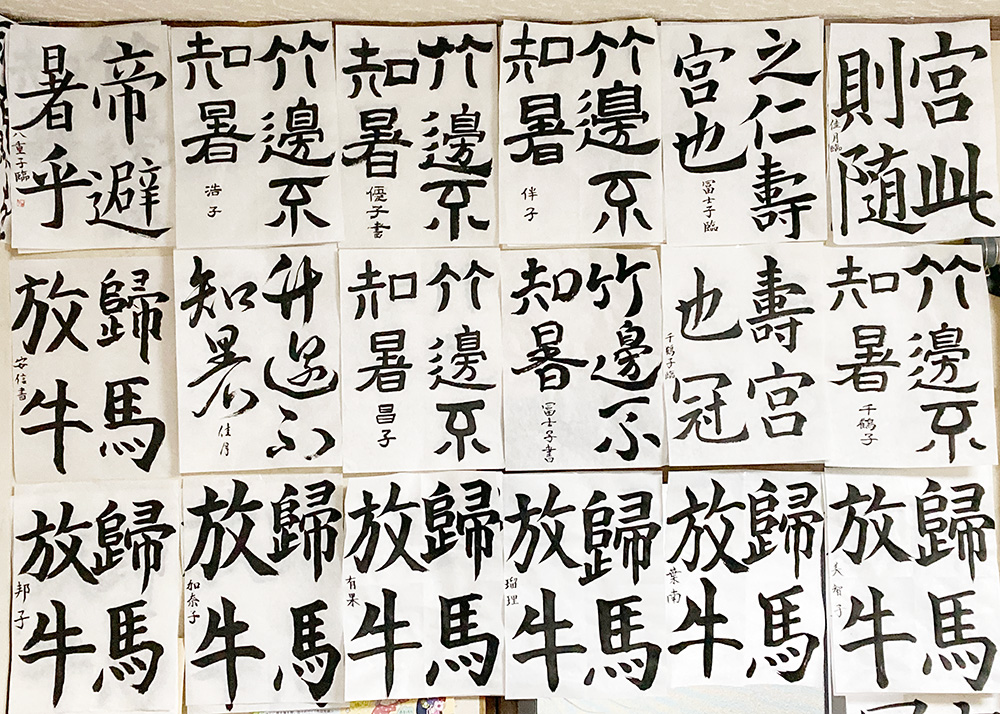 帝避
暑乎
八重子臨
竹邊不
知暑
浩子
竹邊不
知暑
優子書
竹邊不
知暑
伴子
之仁壽
宮也
冨士子臨
宮此
則随
佳月臨
歸馬
放牛
安信書
竹邊不
知暑
佳月
竹邊不
知暑
昌子
竹邊不
知暑
冨士子書
壽宮
也冠
千鶴子臨
竹邊不
知暑
千鶴子
歸馬
放牛
邦子
歸馬
放牛
加奈子
歸馬
放牛
有果
歸馬
放牛
瑠理
歸馬
放牛
葉南
歸馬
放牛
美智子